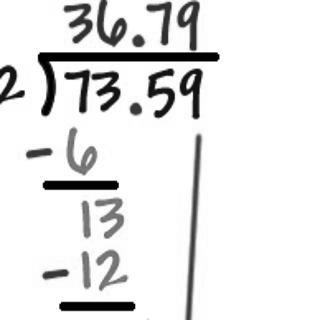 36.79
2)73.59
-6
13
-12